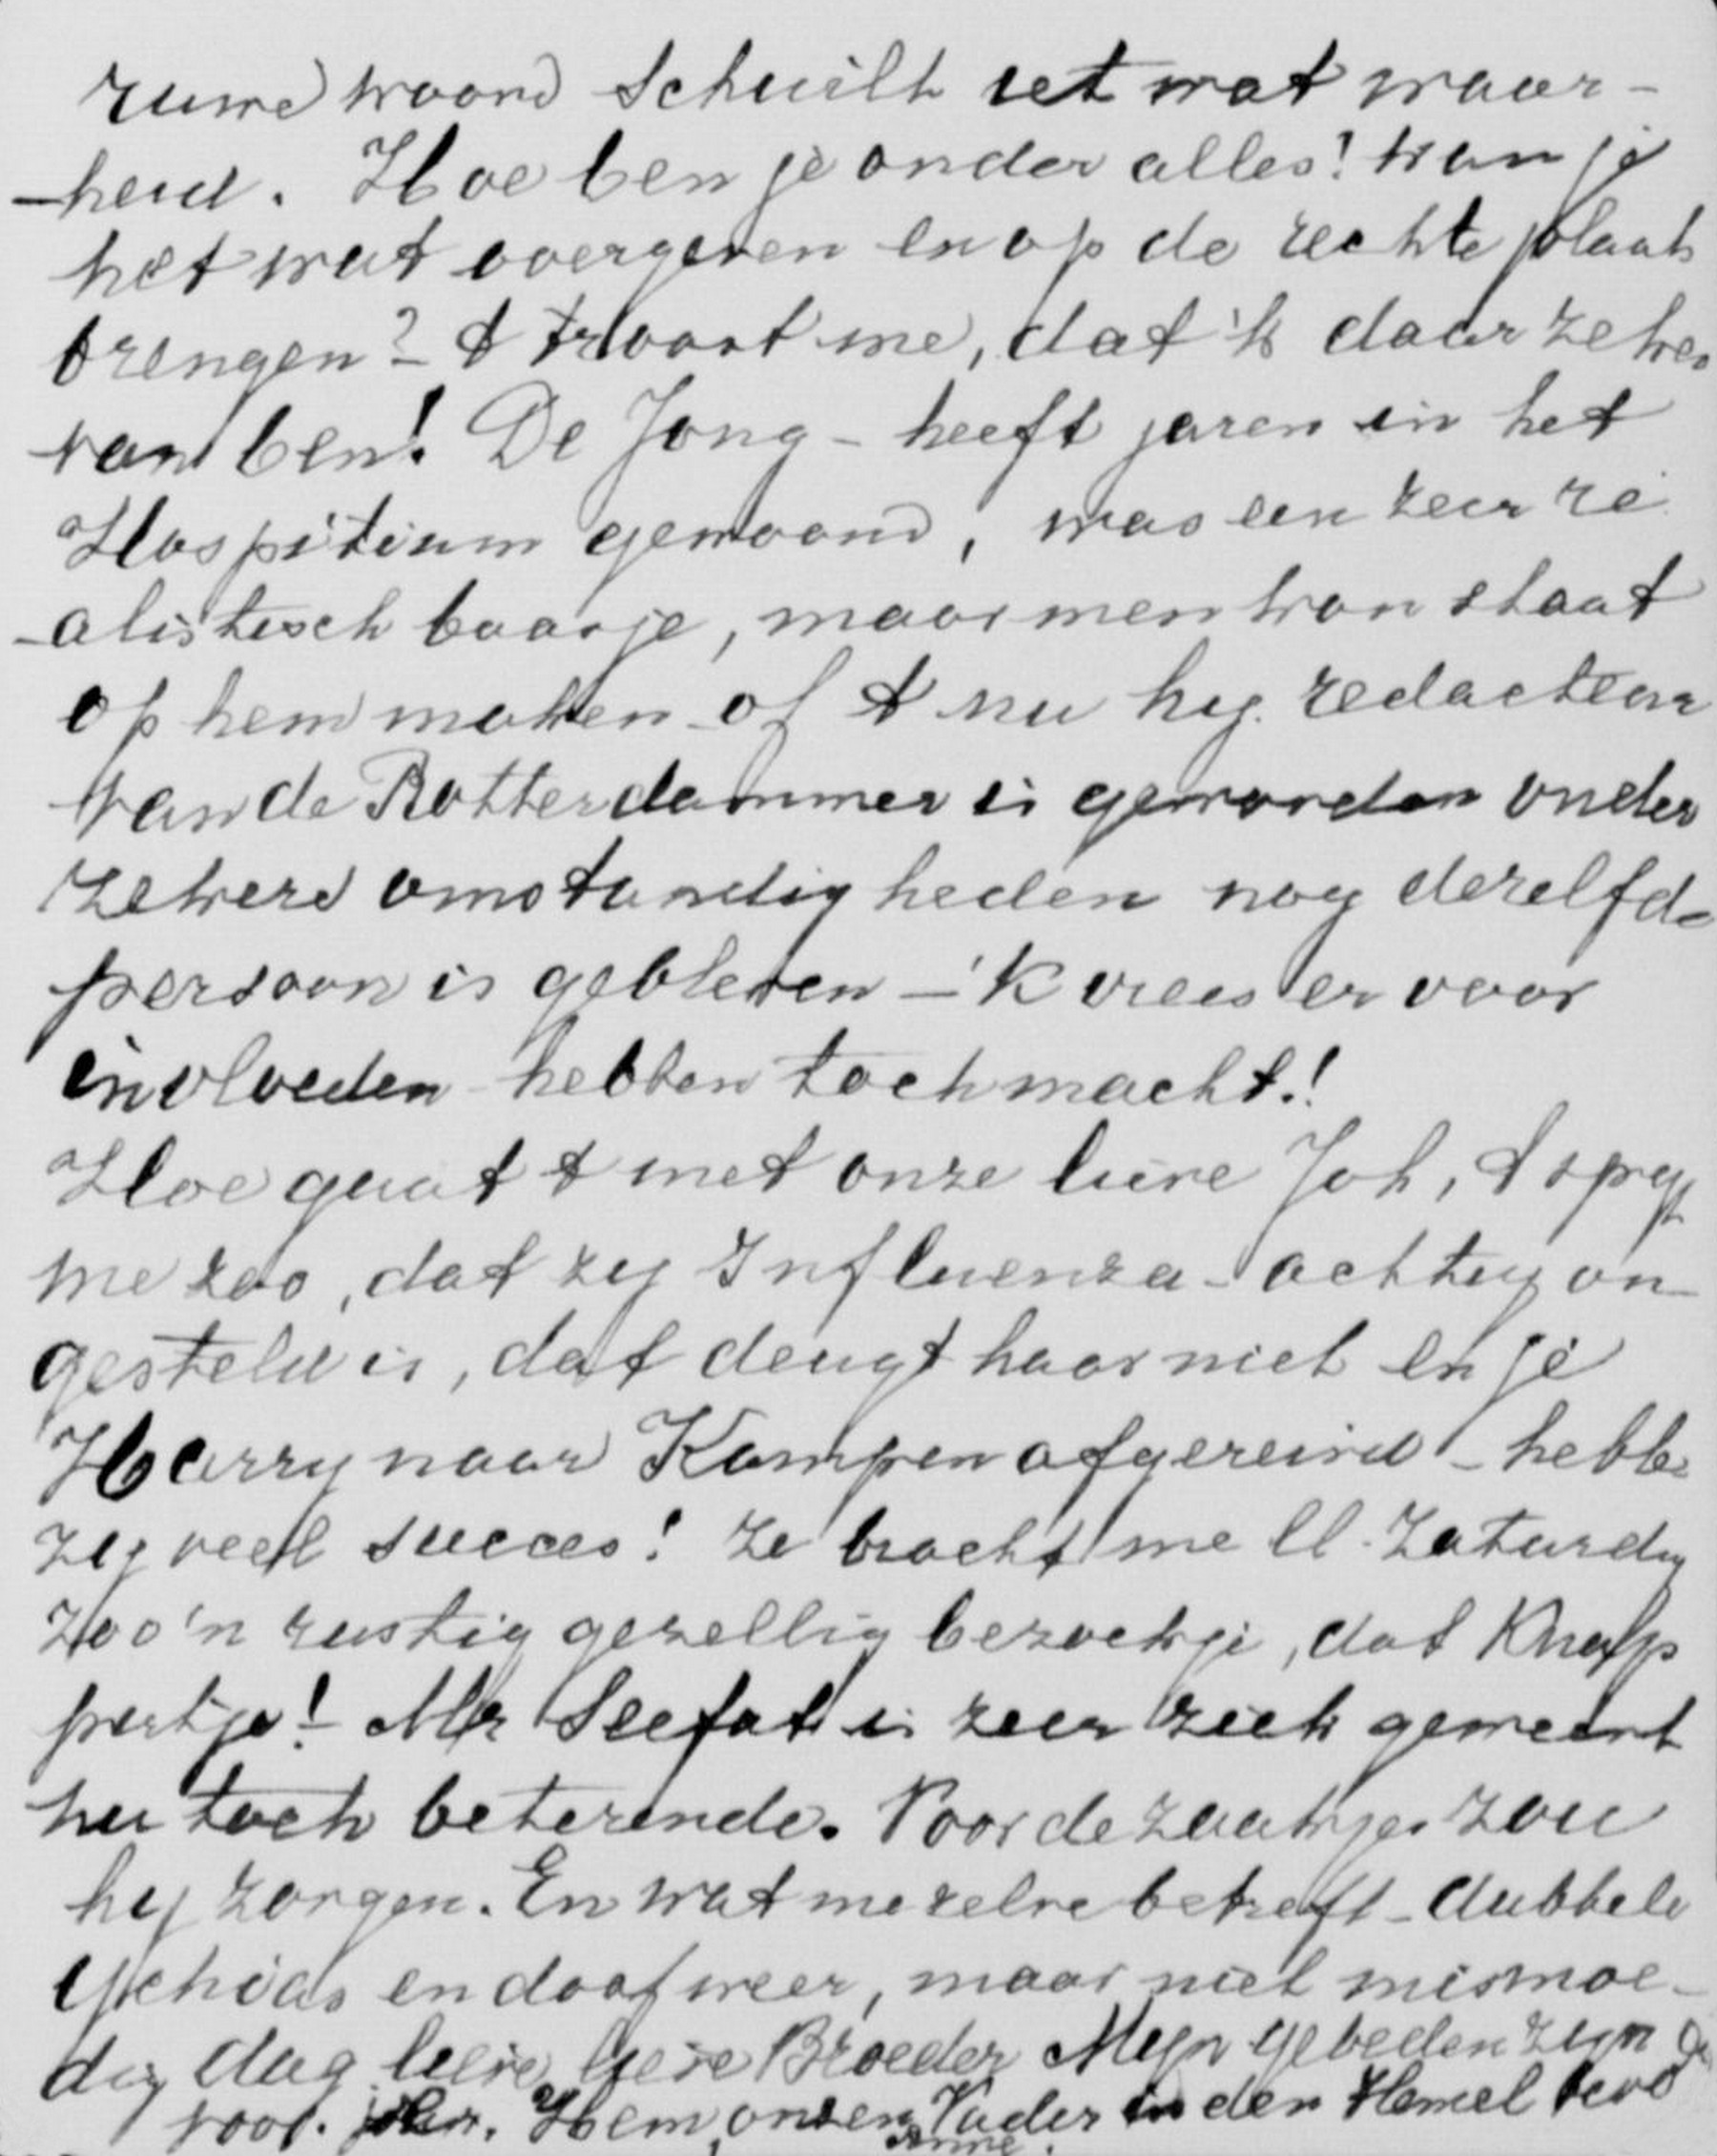 ruwe woord schuilt iet wat waar-
-heid. Hoe ben je onder alles! kan je
het wat overgeven en op de rechte plaats
brengen? - 't troost me, dat 'k daar zeker
van ben! De Jong - heeft jaren in het
Hospitium gewoond, was een zeer re
-alistisch baasje, maar men kon staat
op hem maken - of 't nu hij redacteur
van de Rotterdammer is geworden onder
zekere omstandigheden nog dezelfde
persoon is gebleven - 'k vrees er voor
invloeden hebben toch macht!
Hoe gaat 't met onze lieve Joh, 't spijt
me zoo, dat zij Influenza-achtig on-
gesteld is, dat deugt haar niet en je
Harry naar Kampen afgereisd - hebbe
zij veel succes! Ze bracht me ll. Zaturdag
zoo'n rustig gezellig bezoekje, dat Knap
portje! - Mr Seefat is zeer ziek geweest
nu toch beterende. Voor de zaakjes zou
hij zorgen. En wat mezelve betreft - dubbele
Ischias en doof weer, maar niet mismoe-
dig dag lieve lieve Broeder Mijn gebeden zijn
voor. Hem, onzen Vader in den Hemel
Anne.